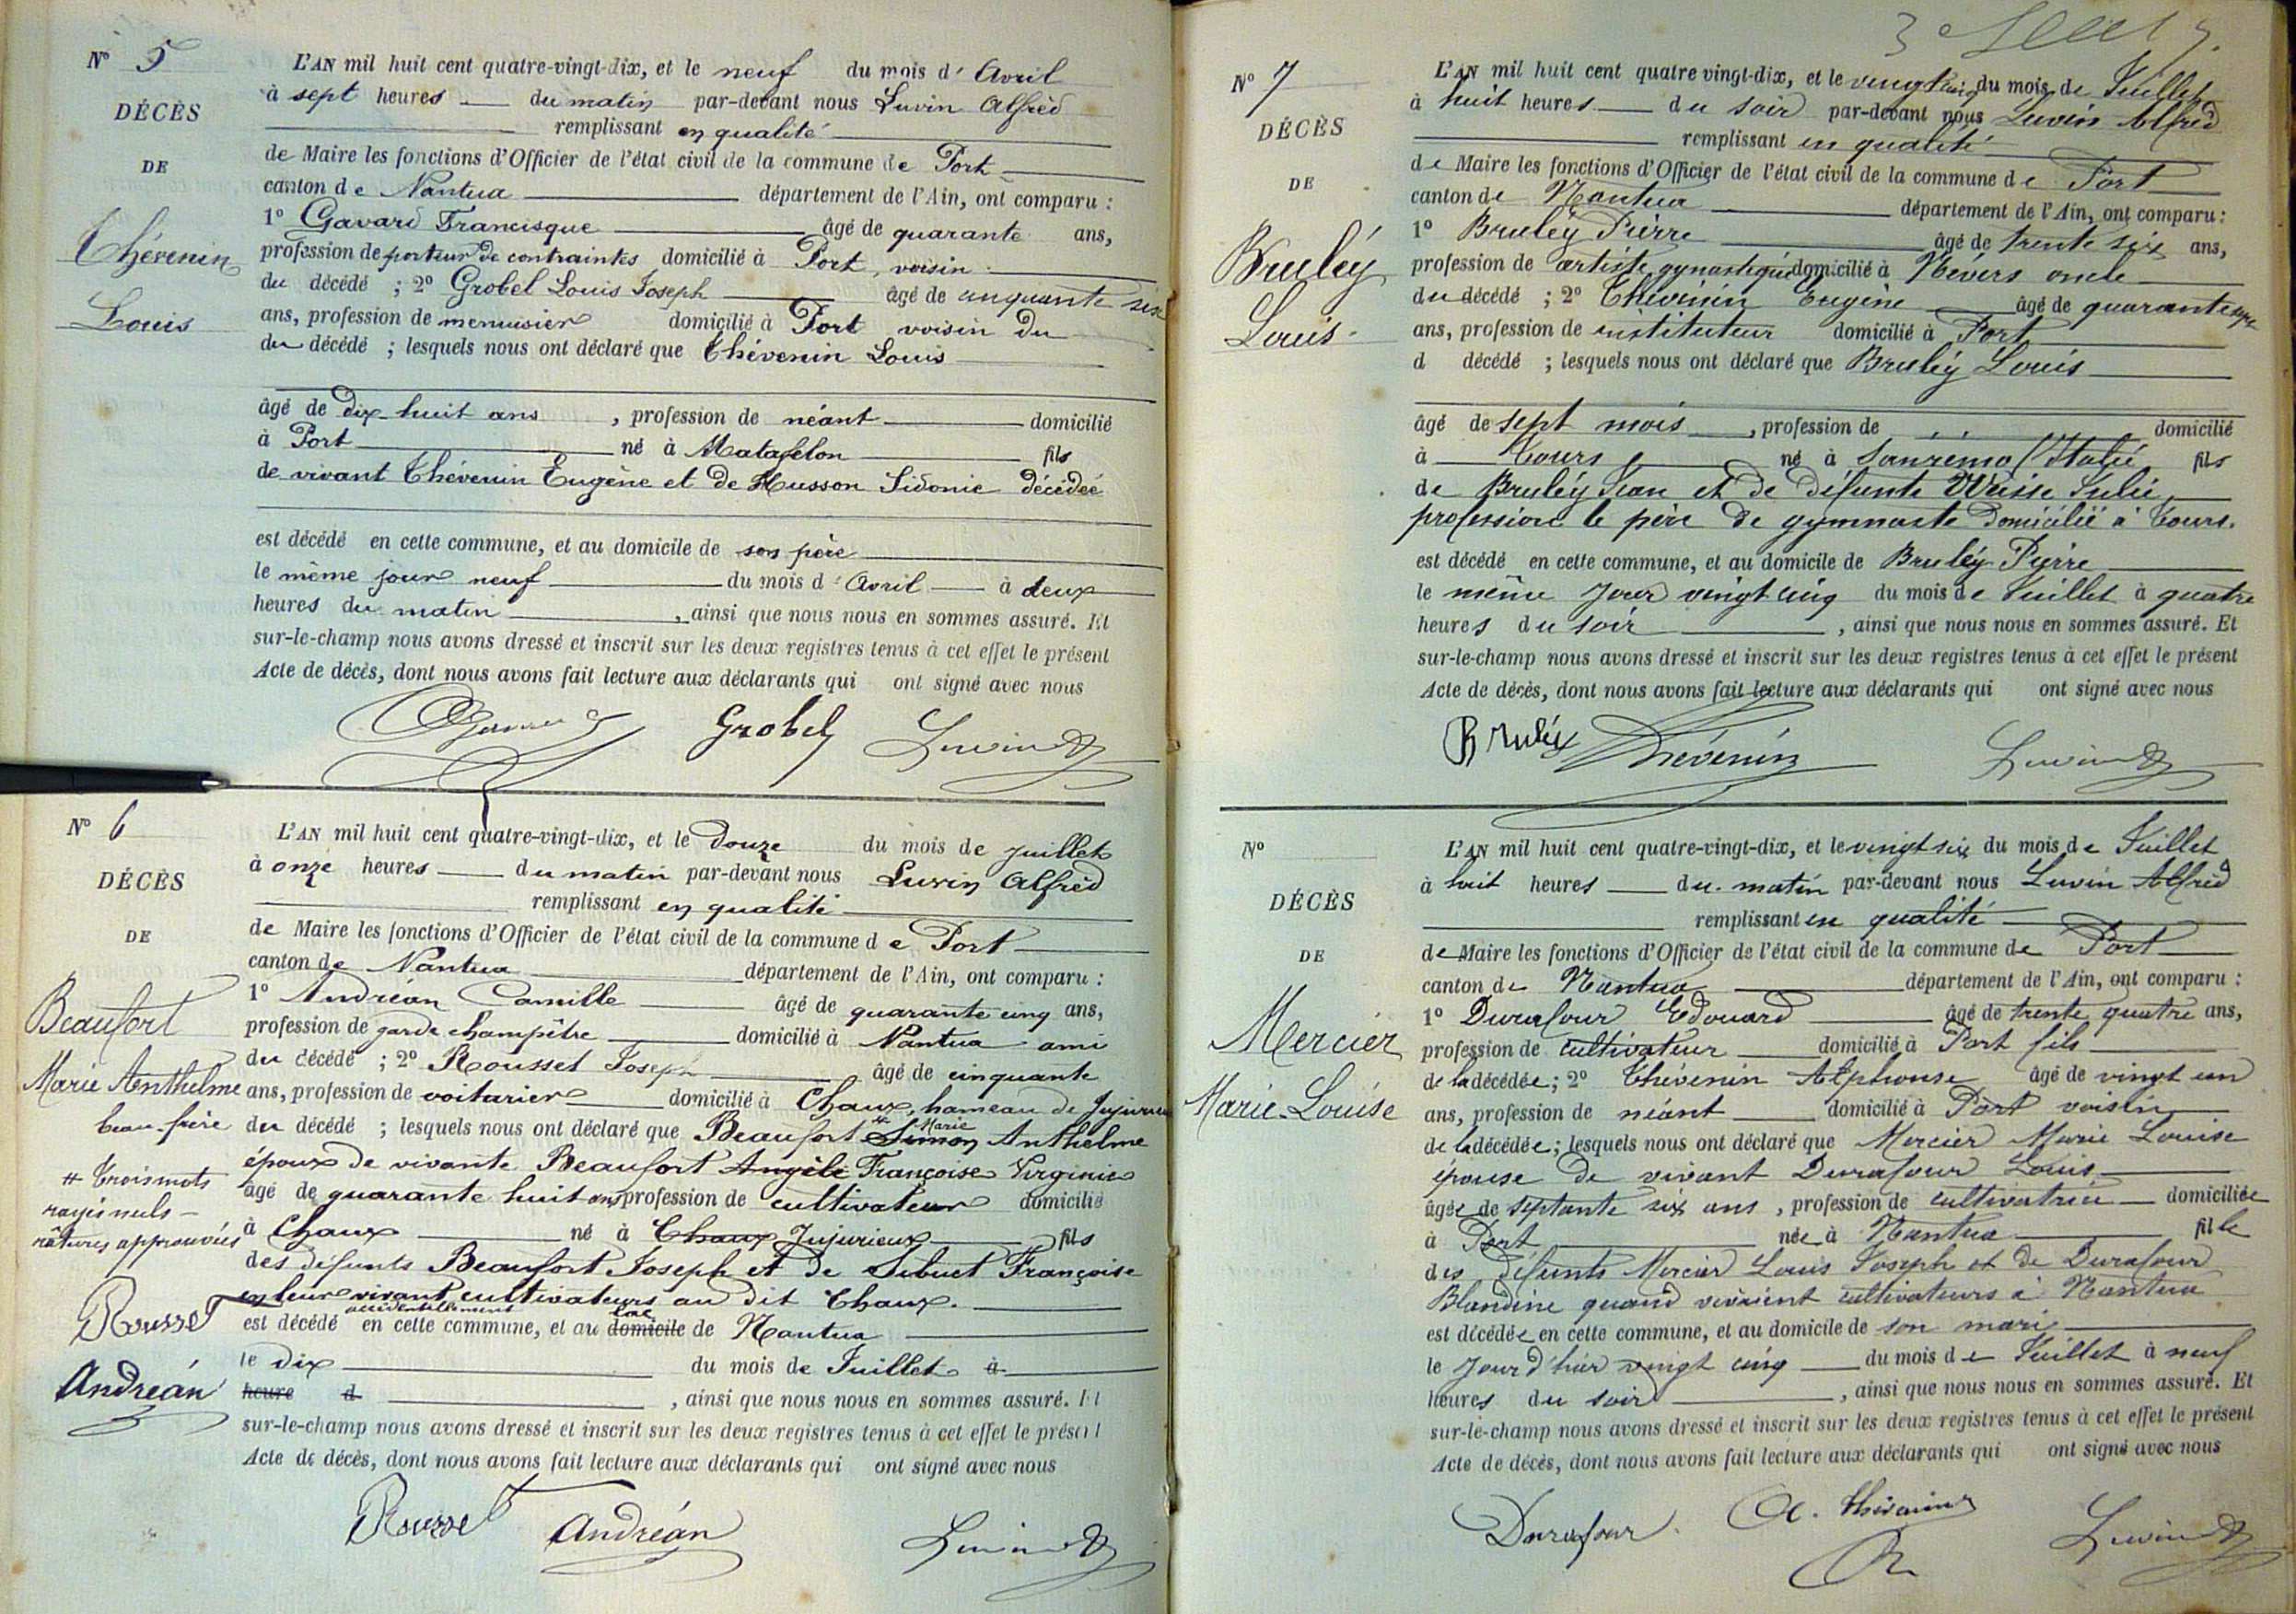 N° 5
DÉCÈS
DE
Thévenin
Louis
L'AN mil huit cent quatre-vingt-dix, et le neuf du mois d' Avril
à sept heures du matin par-devant nous Luvin Alfred
remplissant en qualité
de Maire les fonctions d'Officier de l'état civil de la commune de Port
canton de Nantua département de l'Ain, ont comparu :
1° Gavard Francisque âgé de quarante ans,
profession de porteur de contraintes domicilié à Port, voisin
du décédé ; 2° Grobel Louis Joseph âgé de cinquante six
ans, profession de menuisier domicilié à Port voisin du
du décédé ; lesquels nous ont déclaré que Thévenin Louis
âgé de dix-huit ans , profession de néant domicilié
à Port né à Matafelon fils
de vivant Thévenin Eugène et de Husson Sidonie décédée
est décédé en cette commune, et au domicile de son père
le même jour neuf du mois d' Avril à deux
heures du matin , ainsi que nous nous en sommes assuré. Et
sur-le-champ nous avons dressé et inscrit sur les deux registres tenus à cet effet le présent
Acte de décès, dont nous avons fait lecture aux déclarants qui ont signé avec nous
Grobel Luvin
N° 6
DÉCÈS
DE
Beaufort
Marie Anthelme
beau-frère
# Trois mots
rayés nuls
ratures approuvées
Rousset
Andréan
L'AN mil huit cent quatre-vingt-dix, et le Douze du mois de juillet
à onze heures du matin par-devant nous Luvin Alfred
remplissant en qualité
de Maire les fonctions d'Officier de l'état civil de la commune de Port
canton de Nantua département de l'Ain, ont comparu :
1° Andréan Camille âgé de quarante cinq ans,
profession de garde champêtre domicilié à Nantua ami
du décédé ; 2° Rousset Joseph âgé de cinquante
ans, profession de voiturier domicilié à Chaux, hameau de Jujurieux
du décédé ; lesquels nous ont déclaré que Beaufort # Simon Marie Anthelme
époux de vivante Beaufort Angèle Françoise Virginie
âgé de quarante huit ans profession de cultivateur domicilié
à Chaux né à Chaux Jujurieux fils
des défunts Beaufort Joseph et de Sibuet Françoise
en leur vivant cultivateurs au dit Chaux.
est décédé accidentellement en cette commune, et au domicile lac de Nantua
le dix du mois de Juillet à
heure d , ainsi que nous nous en sommes assuré. Et
sur-le-champ nous avons dressé et inscrit sur les deux registres tenus à cet effet le présent
Acte de décès, dont nous avons fait lecture aux déclarants qui ont signé avec nous
Rousset Andréan Luvin
N° 7
DÉCÈS
DE
Bruley
Louis
L'AN mil huit cent quatre vingt-dix, et le vingt cinq du mois de Juillet
à huit heures du soir par-devant nous Luvin Alfred
remplissant en qualité
de Maire les fonctions d'Officier de l'état civil de la commune de Port
canton de Nantua département de l'Ain, ont comparu :
1° Bruley Pierre âgé de trente six ans,
profession de artiste gynastique domicilié à Névers oncle
du décédé ; 2° Thévenin Eugène âgé de quarante sept
ans, profession de instituteur domicilié à Port
d décédé ; lesquels nous ont déclaré que Bruley Louis
âgé de sept mois , profession de domicilié
à Tours né à Sanrémo (Italie fils
de Bruley Jean et de défunte Weisse Julie
profession le père de gymnaste domicilié à Tours.
est décédé en cette commune, et au domicile de Bruley Pierre
le même jour vingt cinq du mois de Juillet à quatre
heures du soir , ainsi que nous nous en sommes assuré. Et
sur-le-champ nous avons dressé et inscrit sur les deux registres tenus à cet effet le présent
Acte de décès, dont nous avons fait lecture aux déclarants qui ont signé avec nous
Bruley Thévenin Luvin
N°
DÉCÈS
DE
Mercier
Marie-Louise
L'AN mil huit cent quatre-vingt-dix, et le vingt six du mois de Juillet
à huit heures du matin par-devant nous Luvin Alfred
remplissant en qualité
de Maire les fonctions d'Officier de l'état civil de la commune de Port
canton de Nantua département de l'Ain, ont comparu :
1° Durafour Edouard âgé de trente quatre ans,
profession de cultivateur domicilié à Port fils
de la décédée ; 2° Thévenin Alphonse âgé de vingt un
ans, profession de néant domicilié à Port voisin
de la décédée ; lesquels nous ont déclaré que Mercier Marie Louise
épouse de vivant Durafour Louis
âgée de septante six ans , profession de cultivatrice domiciliée
à Port née à Nantua fille
des défunts Mercier Louis Joseph et de Durafour
Blandine quand vivaient cultivateurs à Nantua
est décédée en cette commune, et au domicile de son mari
le jour d'hier vingt cinq du mois de Juillet à neuf
heures du soir , ainsi que nous nous en sommes assuré. Et
sur-le-champ nous avons dressé et inscrit sur les deux registres tenus à cet effet le présent
Acte de décès, dont nous avons fait lecture aux déclarants qui ont signé avec nous
Durafour A. Thévenin Luvin